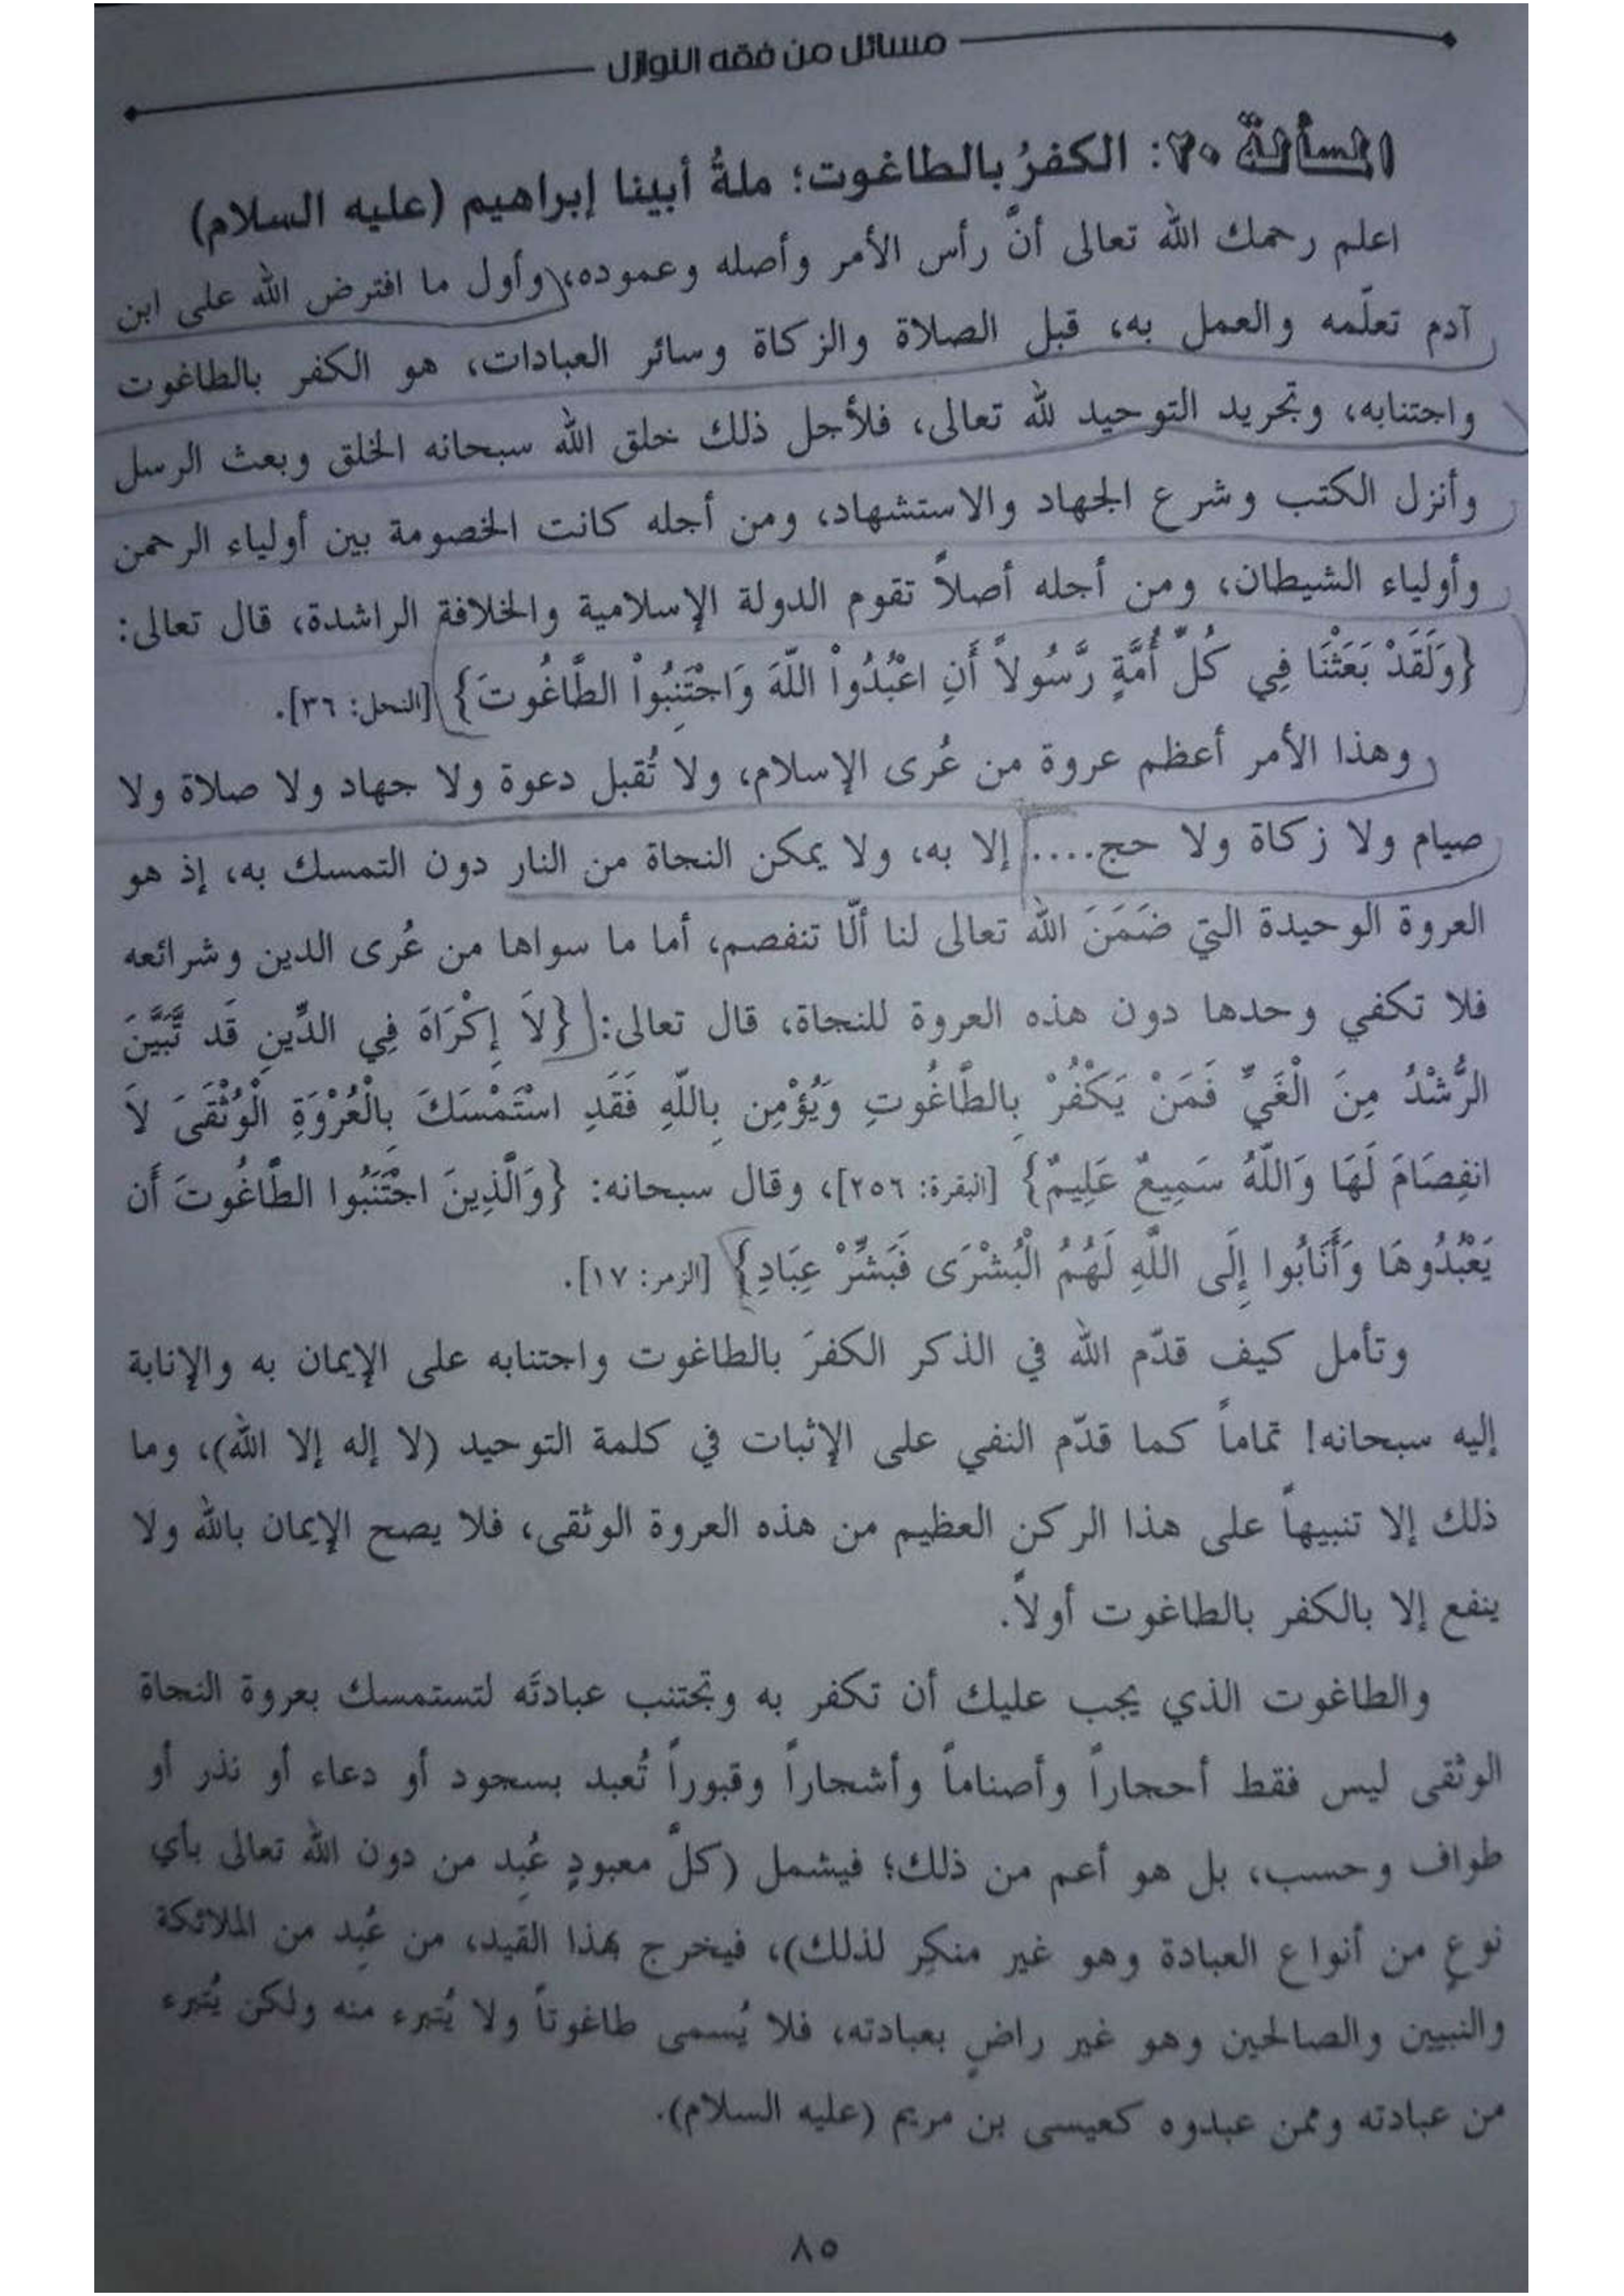 مسائل من فقه النوازل
المسألة ٢٠: الكفرُ بالطاغوت؛ ملةُ أبينا إبراهيم (عليه السلام)
اعلم رحمك الله تعالى أنَّ رأس الأمر وأصله وعموده، وأول ما افترض الله على ابن
آدم تعلّمه والعمل به، قبل الصلاة والزكاة وسائر العبادات، هو الكفر بالطاغوت
واجتنابه، وتجريد التوحيد لله تعالى، فلأجل ذلك خلق الله سبحانه الخلق وبعث الرسل
وأنزل الكتب وشرع الجهاد والاستشهاد، ومن أجله كانت الخصومة بين أولياء الرحمن
وأولياء الشيطان، ومن أجله أصلاً تقوم الدولة الإسلامية والخلافة الراشدة، قال تعالى:
{وَلَقَدْ بَعَثْنَا فِي كُلِّ أُمَّةٍ رَّسُولاً أَنِ اعْبُدُواْ اللّهَ وَاجْتَنِبُواْ الطَّاغُوتَ} [النحل: ٣٦].
وهذا الأمر أعظم عروة من عُرى الإسلام، ولا تُقبل دعوة ولا جهاد ولا صلاة ولا
صيام ولا زكاة ولا حج.... إلا به، ولا يمكن النجاة من النار دون التمسك به، إذ هو
العروة الوحيدة التي ضَمَنَ الله تعالى لنا ألّا تنفصم، أما ما سواها من عُرى الدين وشرائعه
فلا تكفي وحدها دون هذه العروة للنجاة، قال تعالى: {لاَ إِكْرَاهَ فِي الدِّينِ قَد تَّبَيَّنَ
الرُّشْدُ مِنَ الْغَيِّ فَمَنْ يَكْفُرْ بِالطَّاغُوتِ وَيُؤْمِن بِاللّهِ فَقَدِ اسْتَمْسَكَ بِالْعُرْوَةِ الْوُثْقَىَ لاَ
انفِصَامَ لَهَا وَاللّهُ سَمِيعٌ عَلِيمٌ} [البقرة: ٢٥٦]، وقال سبحانه: {وَالَّذِينَ اجْتَنَبُوا الطَّاغُوتَ أَن
يَعْبُدُوهَا وَأَنَابُوا إِلَى اللَّهِ لَهُمُ الْبُشْرَى فَبَشِّرْ عِبَادِ} [الزمر: ١٧].
وتأمل كيف قدّم الله في الذكر الكفرَ بالطاغوت واجتنابه على الإيمان به والإنابة
إليه سبحانه! تماماً كما قدّم النفي على الإثبات في كلمة التوحيد (لا إله إلا الله)، وما
ذلك إلا تنبيهاً على هذا الركن العظيم من هذه العروة الوثقى، فلا يصح الإيمان بالله ولا
ينفع إلا بالكفر بالطاغوت أولاً.
والطاغوت الذي يجب عليك أن تكفر به وتجتنب عبادتَه لتستمسك بعروة النجاة
الوثقى ليس فقط أحجاراً وأصناماً وأشجاراً وقبوراً تُعبد بسجود أو دعاء أو نذر أو
طواف وحسب، بل هو أعم من ذلك؛ فيشمل (كلَّ معبودٍ عُبِد من دون الله تعالى بأي
نوعٍ من أنواع العبادة وهو غير منكِر لذلك)، فيخرج بهذا القيد، من عُبِد من الملائكة
والنبيين والصالحين وهو غير راضٍ بعبادته، فلا يُسمى طاغوتاً ولا يُتبرء منه ولكن يُتبرء
من عبادته وممن عبدوه كعيسى بن مريم (عليه السلام).
٨٥